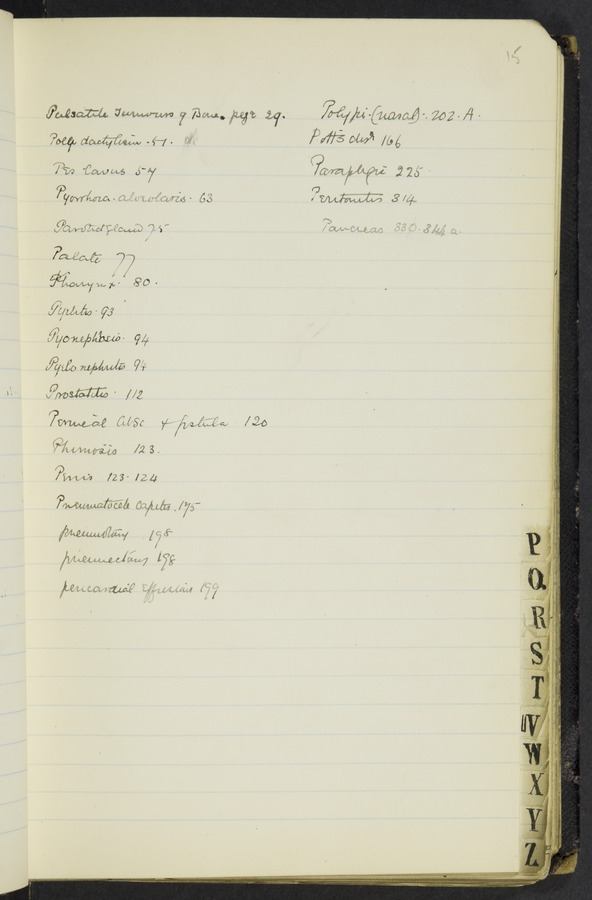 15
Pulsatile Tumours of Bone. page 29.
Polydactylism. 51.
Pes Cavus 54
Pyorrhoea. alveolaris. 63
Parotid gland 75
Palate 77
Pharynx. 80.
Pyelitis. 93
Pyonephrosis. 94
Pyelonephritis 94
Prostatitis. 112
Perineal absc & fistula 120
Phimosis 123.
Penis 123. 124
Pneumatocele capitis. 175
pneumotomy 198
pneumectomy 198
pericardial effusions 199
Polypi. (nasal). 202. A.
Potts dis. 166
Paraplegia 225
Peritonitis 314
Pancreas 330. 344 a.
P
Q.
R
S
T
UV
W
X
Y
Z